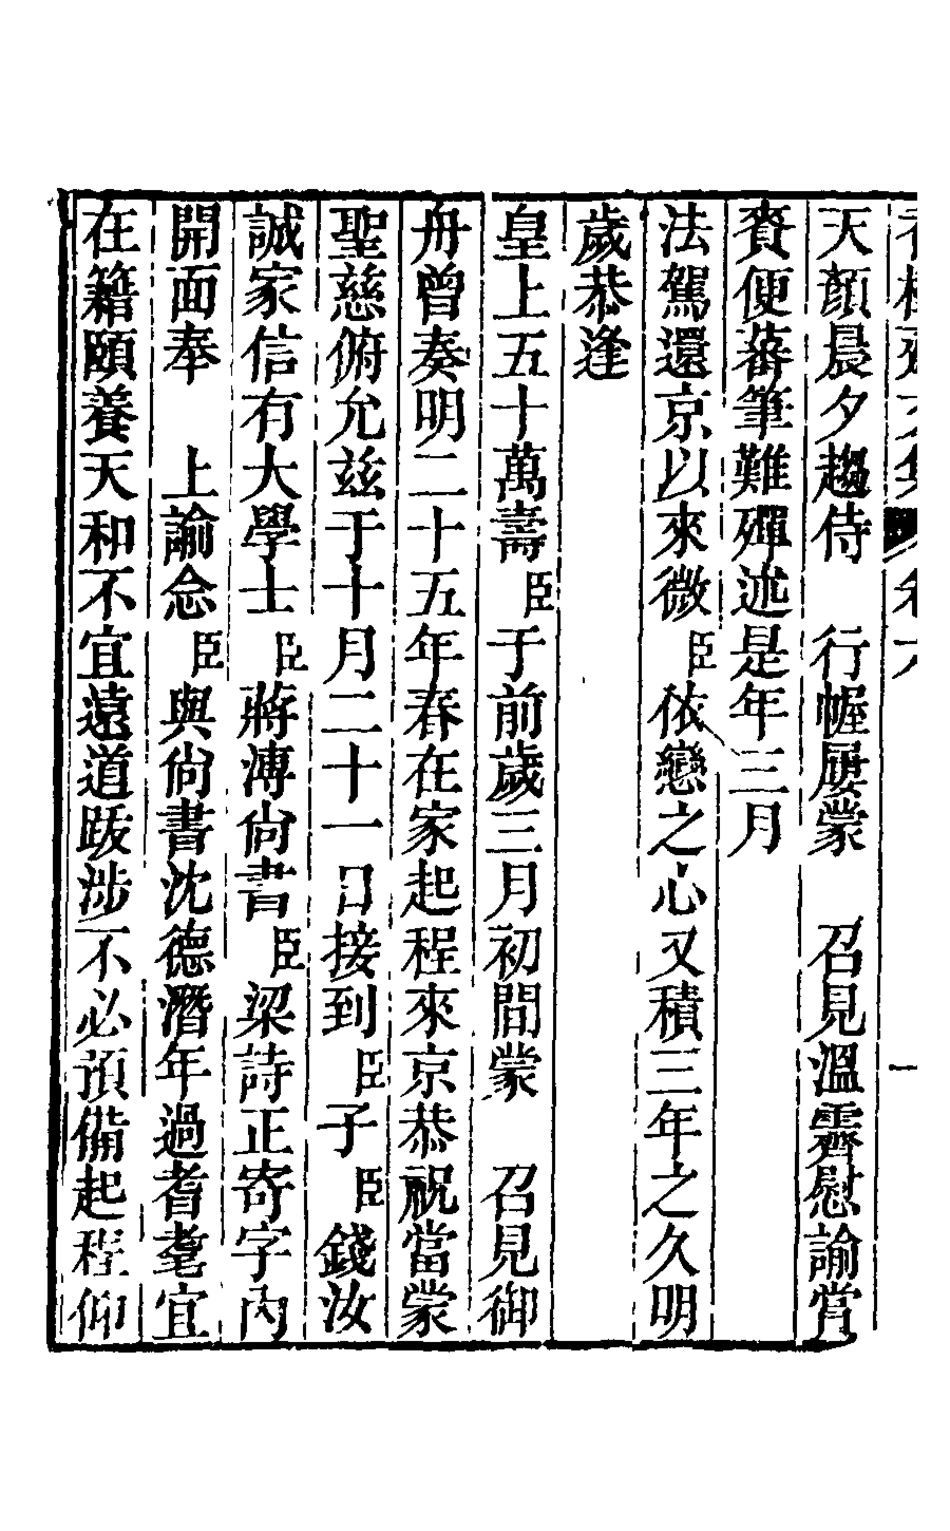 天顏晨夕趨侍　行幄屢蒙　召見溫霽慰諭賞
賚便蕃筆難殫述是年三月
法駕還京以來微臣依戀之心又積三年之久明
歲恭逢
皇上五十萬壽臣于前歲三月初間蒙　召見御
舟曾奏明二十五年春在家起程來京恭祝當蒙
聖慈俯允茲于十月二十一日接到臣子臣錢汝
誠家信有大學士臣蔣溥尙書臣梁詩正寄字內
開面奉　上諭念臣與尙書沈德潛年過耆耄宜
在籍頤養天和不宜遠道跋涉不必預備起程仰